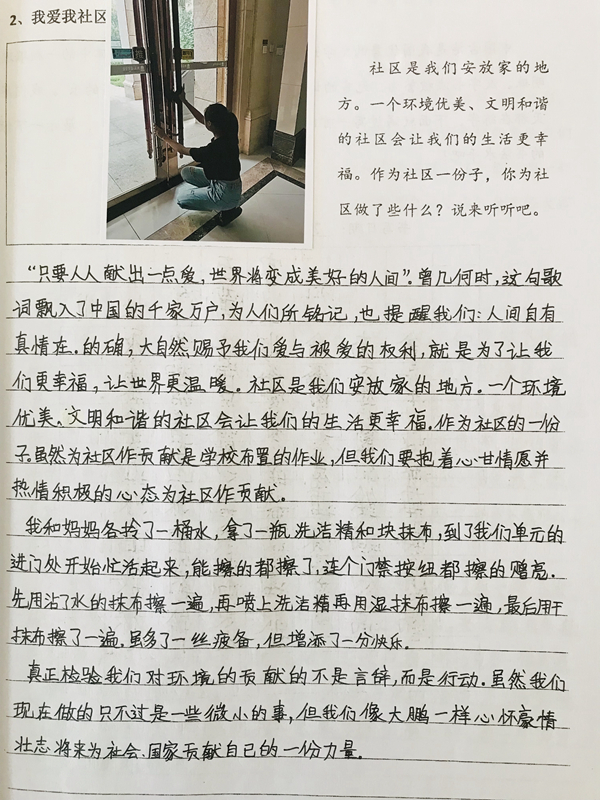 2、我爱我社区
社区是我们安放家的地
方。一个环境优美、文明和谐
的社区会让我们的生活更幸
福。作为社区一份子，你为社
区做了些什么？说来听听吧。
“只要人人献出一点爱，世界将变成美好的人间”。曾几何时，这句歌
词飘入了中国的千家万户，为人们所铭记，也提醒我们：人间自有
真情在。的确，大自然赐予我们爱与被爱的权利，就是为了让我
们更幸福，让世界更温暖。社区是我们安放家的地方。一个环境
优美、文明和谐的社区会让我们的生活更幸福。作为社区的一份
子。虽然为社区作贡献是学校布置的作业，但我们要抱着心甘情愿并
热情积极的心态为社区作贡献。
我和妈妈各拎了一桶水，拿了一瓶洗洁精和块抹布，到了我们单元的
进门处开始忙活起来，能擦的都擦了，连个门禁按钮都擦的赠亮。
先用沾了水的抹布擦一遍，再喷上洗洁精再用湿抹布擦一遍，最后用干
抹布擦了一遍。虽多了一丝疲备，但增添了一分快乐。
真正检验我们对环境的贡献的不是言辞，而是行动。虽然我们
现在做的只不过是一些微小的事，但我们像大鹏一样心怀豪情
壮志将来为社会、国家贡献自己的一份力量。